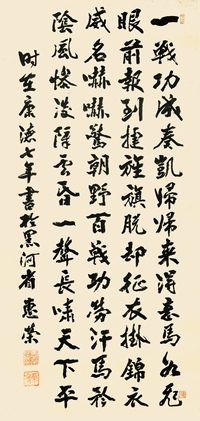 一戰功成奏凱歸歸來得意馬如飛
眼前報到捷旌旗脫却征衣掛錦衣
威名嚇嚇驚朝野百戰功勞汗馬矜
陰風慘淡陣雲昏一聲長嘯天下平
时在康德七年書於黑河省惠榮